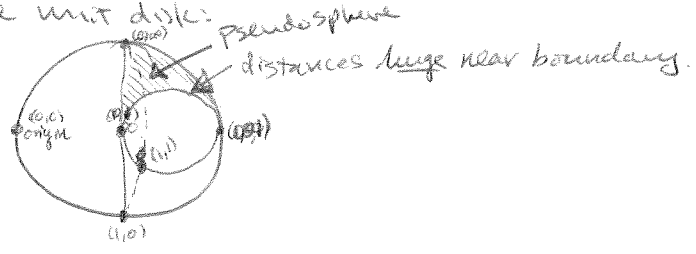 unit disk:
pseudosphere
distances huge near boundary.
(0,0)
origin
(1,1)
(1,0)